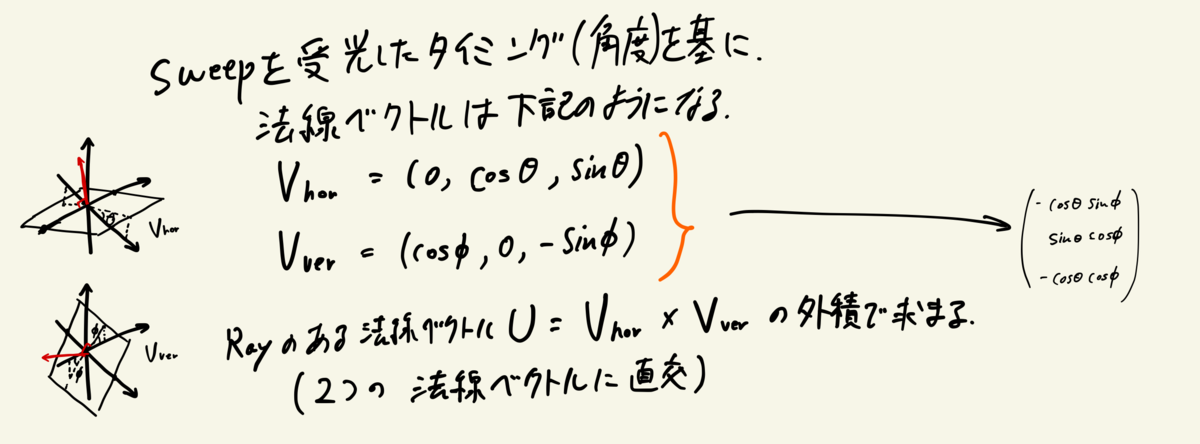 Sweepを受光したタイミング(角度)を基に.
法線ベクトルは下記のようになる.
Vhor = (0, cosθ, sinθ)
Vver = (cosϕ, 0, -sinϕ)
- cosθ sinϕ
sinθ cosϕ
- cosθ cosϕ
θ
Vhor
ϕ
ϕ
Vver
Rayのある法線ベクトル U = Vhor × Vver の外積で求まる.
(2つの法線ベクトルに直交)